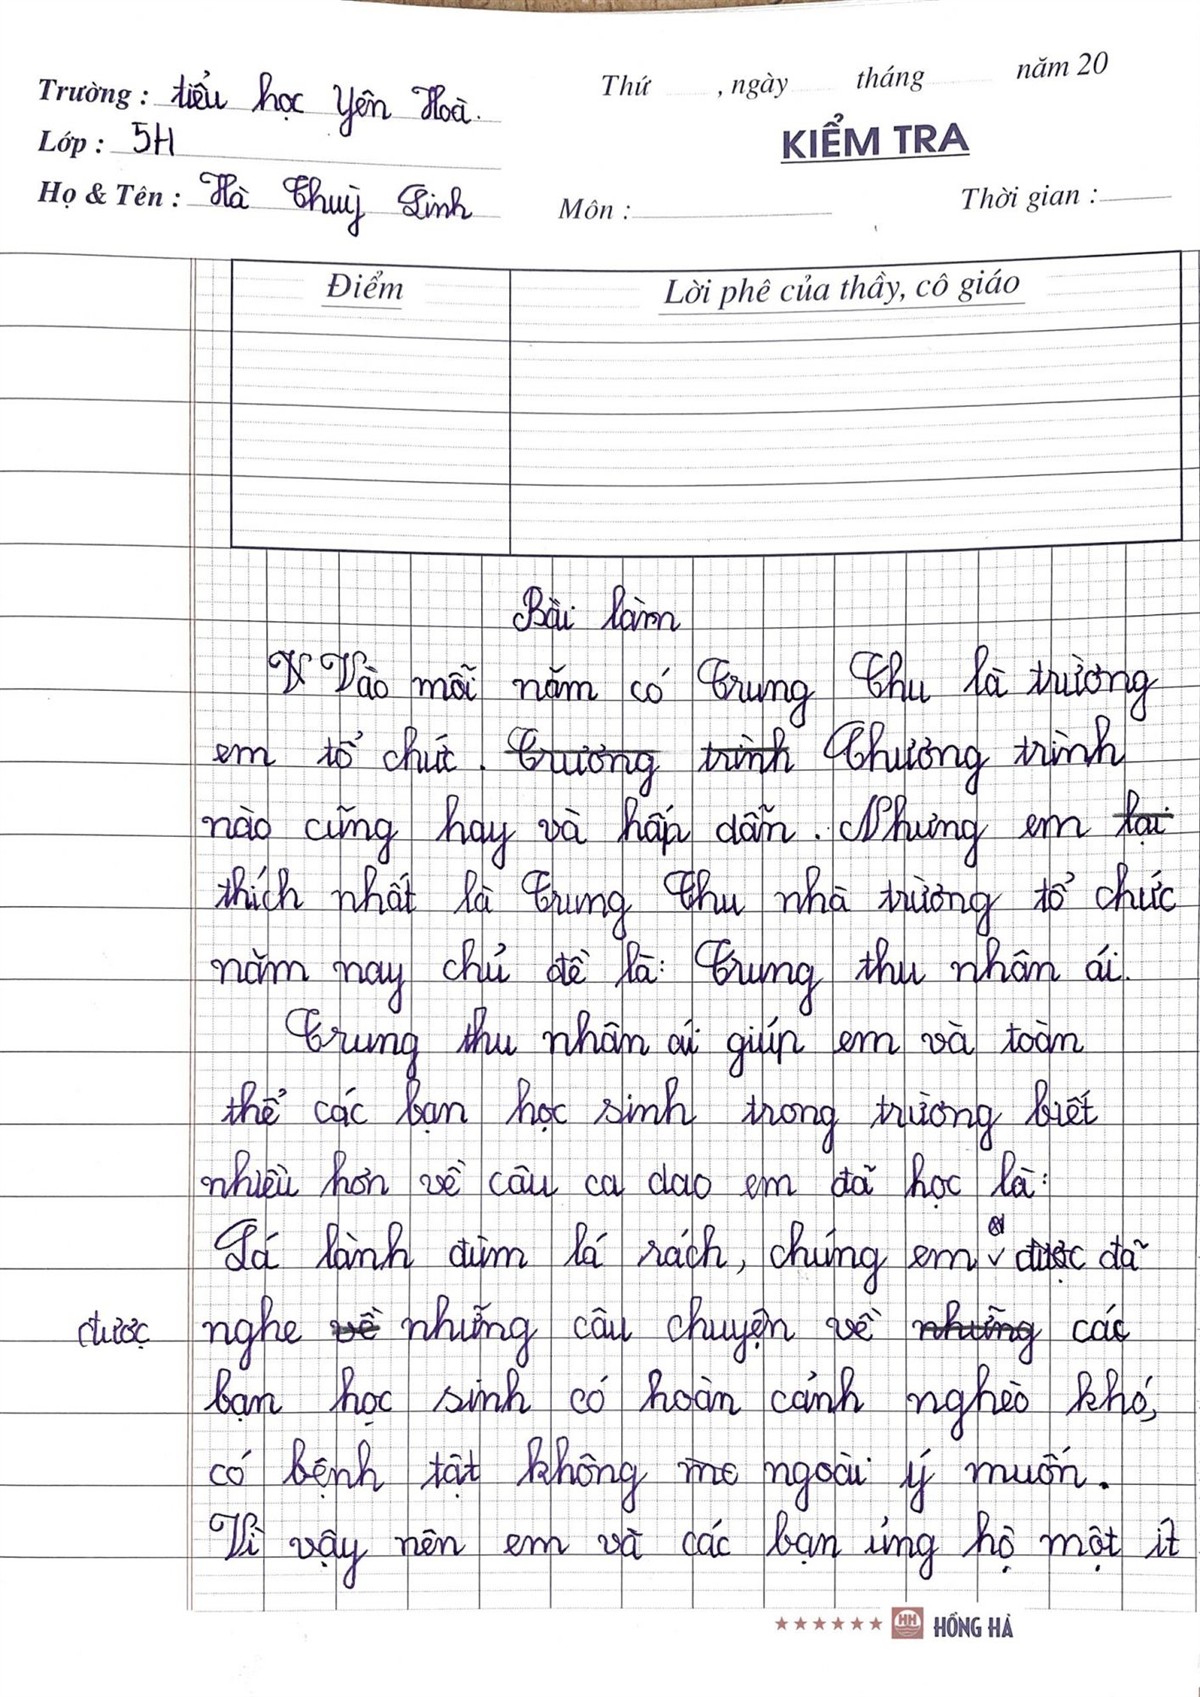 Trường : tiểu học Yên Hoà.
Thứ , ngày tháng năm 20
Lớp : 5H
KIỂM TRA
Họ & Tên : Hà Thuỳ Linh
Môn :
Thời gian :
Điểm
Lời phê của thầy, cô giáo
Bài làm
V Vào mỗi năm có Trung Thu là trường
em tổ chức. Trương trình Chương trình
nào cũng hay và hấp dẫn. Nhưng em lại
thích nhất là Trung Thu nhà trường tổ chức
năm nay chủ đề là: Trung thu nhân ái.
Trung thu nhân ái giúp em và toàn
thể các bạn học sinh trong trường biết
nhiều hơn về câu ca dao em đã học là:
Lá lành đùm lá rách, chúng em được đã
được nghe về những câu chuyện về những các
bạn học sinh có hoàn cảnh nghèo khó,
có bệnh tật không ngoài ý muốn.
Vì vậy nên em và các bạn ủng hộ một ít
HH HỒNG HÀ